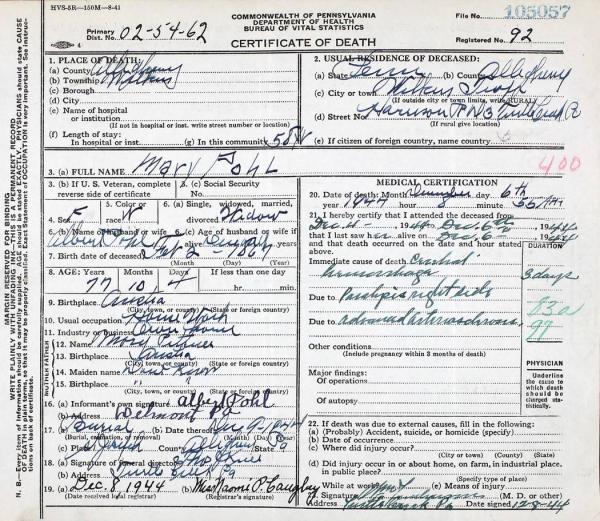 HVS-5R—150M—8-41
COMMONWEALTH OF PENNSYLVANIA
DEPARTMENT OF HEALTH
BUREAU OF VITAL STATISTICS
File No. 105057
Primary Dist. No. 02-54-62
CERTIFICATE OF DEATH
Registered No. 92
1. PLACE OF DEATH:
(a) County Allegheny
(b) Township Wilkins
(c) Borough
(d) City
(e) Name of hospital or institution
(If not in hospital or inst. write street number or location)
(f) Length of stay: In hospital or inst.
(g) In this community
2. USUAL RESIDENCE OF DECEASED:
(a) State Penn (b) County Allegheny
(c) City or town Wilkins Twsp
(If outside city or town limits, write RURAL)
(d) Street No. Harrison
(If rural give location)
(e) If citizen of foreign country, name country
400
3. (a) FULL NAME Mary Pohl
3. (b) If U. S. Veteran, complete reverse side of certificate
3. (c) Social Security No.
4. Sex F
5. Color or race W
6. (a) Single, widowed, married, divorced Widow
6. (b) Name of husband or wife Albert Pohl
6. (c) Age of husband or wife if alive years
7. Birth date of deceased Feb 2 - 1867
8. AGE: Years Months Days If less than one day
77 10 4 hr. min.
9. Birthplace Austria
(City, town, or county) (State or foreign country)
10. Usual occupation House Work
11. Industry or business Own Home
12. Name
13. Birthplace Austria
(City, town, or county) (State or foreign country)
14. Maiden name Dont Know
15. Birthplace " "
(City, town, or county) (State or foreign country)
16. (a) Informant's own signature Albert Pohl
(b) Address Delmont Pa
17. (a) Burial (b) Date thereof Dec 9-1944
(Burial, cremation, or removal) (Month) (Day) (Year)
(c) Place St Joseph Allegheny Pa
18. (a) Signature of funeral director
(b) Address Turtle Creek Pa
19. (a) Dec. 8, 1944 (b) Mrs Naomi P. Caughey
(Date received local registrar) (Registrar's signature)
MEDICAL CERTIFICATION
20. Date of death: Month December day 6th
year 1944 hour min.
21. I hereby certify that I attended the deceased from
Dec. 4 1944 to Dec. 6 1944
that I last saw her alive on Dec. 6 1944
and that death occurred on the date and hour stated above.
DURATION
Immediate cause of death Cerebral
hemorrhage 3 days
Due to Paralysis right side
83a
Due to advanced arteriosclerosis
97
Other conditions
(Include pregnancy within 3 months of death)
PHYSICIAN
Underline the cause to which death should be charged statistically.
Major findings:
Of operations
Of autopsy
22. If death was due to external causes, fill in the following.
(a) (Probably) Accident, suicide, or homicide (specify)
(b) Date of occurrence
(c) Where did injury occur?
(d) Did injury occur in or about home, on farm, in industrial place, in public place?
(Specify type of place)
While at work? (e) Means of injury
Signature (M. D. or other)
Address Turtle Creek Pa Date signed 12-8-44
MARGIN RESERVED FOR BINDING
WRITE PLAINLY WITH UNFADING INK—THIS IS A PERMANENT RECORD
N. B.—Every item of information should be carefully supplied. AGE should be stated EXACTLY. PHYSICIANS should state CAUSE OF DEATH in plain terms, so that it may be properly classified. Exact Statement of OCCUPATION is very important. See instructions on back of certificate.